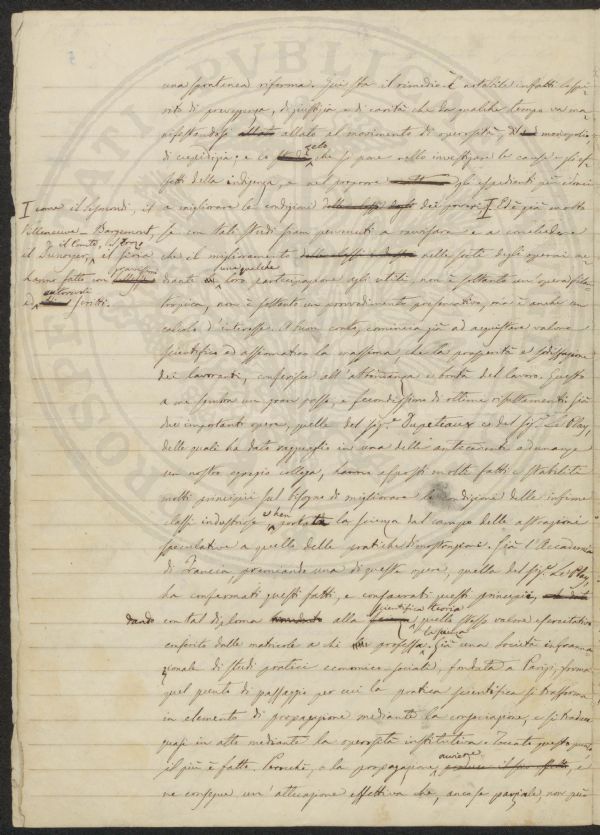 una spontanea riforma. Qui sta il rimedio. È notabile infatti lo spi-
rito di preveggenza, di giustizia e di carità che da qualche tempo va ma-
nifestandosi allato al movimento di operosità, di monopolio
di cupidigia; e lo zelo che si pone nello investigare le cause e gli ef-
fetti della indigenza, e nel proporre gli espedienti più idonei
a migliorare le condizioni dei poveri. Ed è già molto
se con tali studi siam pervenuti a ravvisare e a conchiudere
che il miglioramento nelle sorti degli operai me-
diante una qualche loro partecipazione agli utili, non è soltanto un'opera filan-
tropica, non è soltanto un provvedimento preservativo, ma è anche un
calcolo d'interesse. A buon conto, comincia già ad acquistare valore
scientifico ed assiomatico la massima che la prosperità e sodisfazione
dei lavoranti, conferisce all'abbondanza e bontà del lavoro. Questo
a me sembra un gran passo, e fecondissimo di ottimi resultamenti. Già
due importanti opere, quella del sig.r Dupeteaux e del sig.r Le Play,
delle quali ha dato ragguaglio in una delle antecedenti adunanze
un nostro egregio collega, hanno esposti molti fatti e stabiliti
molti principii sul bisogno di migliorare le condizioni delle infime
classi industriose e ben portata la scienza dal campo delle astrazioni
speculative a quello delle pratiche dimostrazioni. Già l'Accademia
di Francia premiando una di queste opere, quella del sig.r Le Play,
ha confermati questi fatti, e consacrati questi principii,
dando con tal diploma alla scientifica teoria quello stesso valore
conferito dalle matricole a chi professa. Già una Società
di studi pratici economico-sociali, fondata a Parigi, forma
quel punto di passaggio per cui la pratica scientifica si trasforma
in elemento di propagazione mediante la consociazione, e si traduce
quasi in atto mediante la operosità institutiva. Toccato questo punto
il più è fatto. Perocchè, o la propagazione avviene, e
ne consegue un'attuazione effettiva che, ancorchè parziale, non può
I come il Sismondi, il
Villeneuve-Bargemont,
il Dunoyer, il Conte, il
hanno fatto con
ed autorevoli scritti.